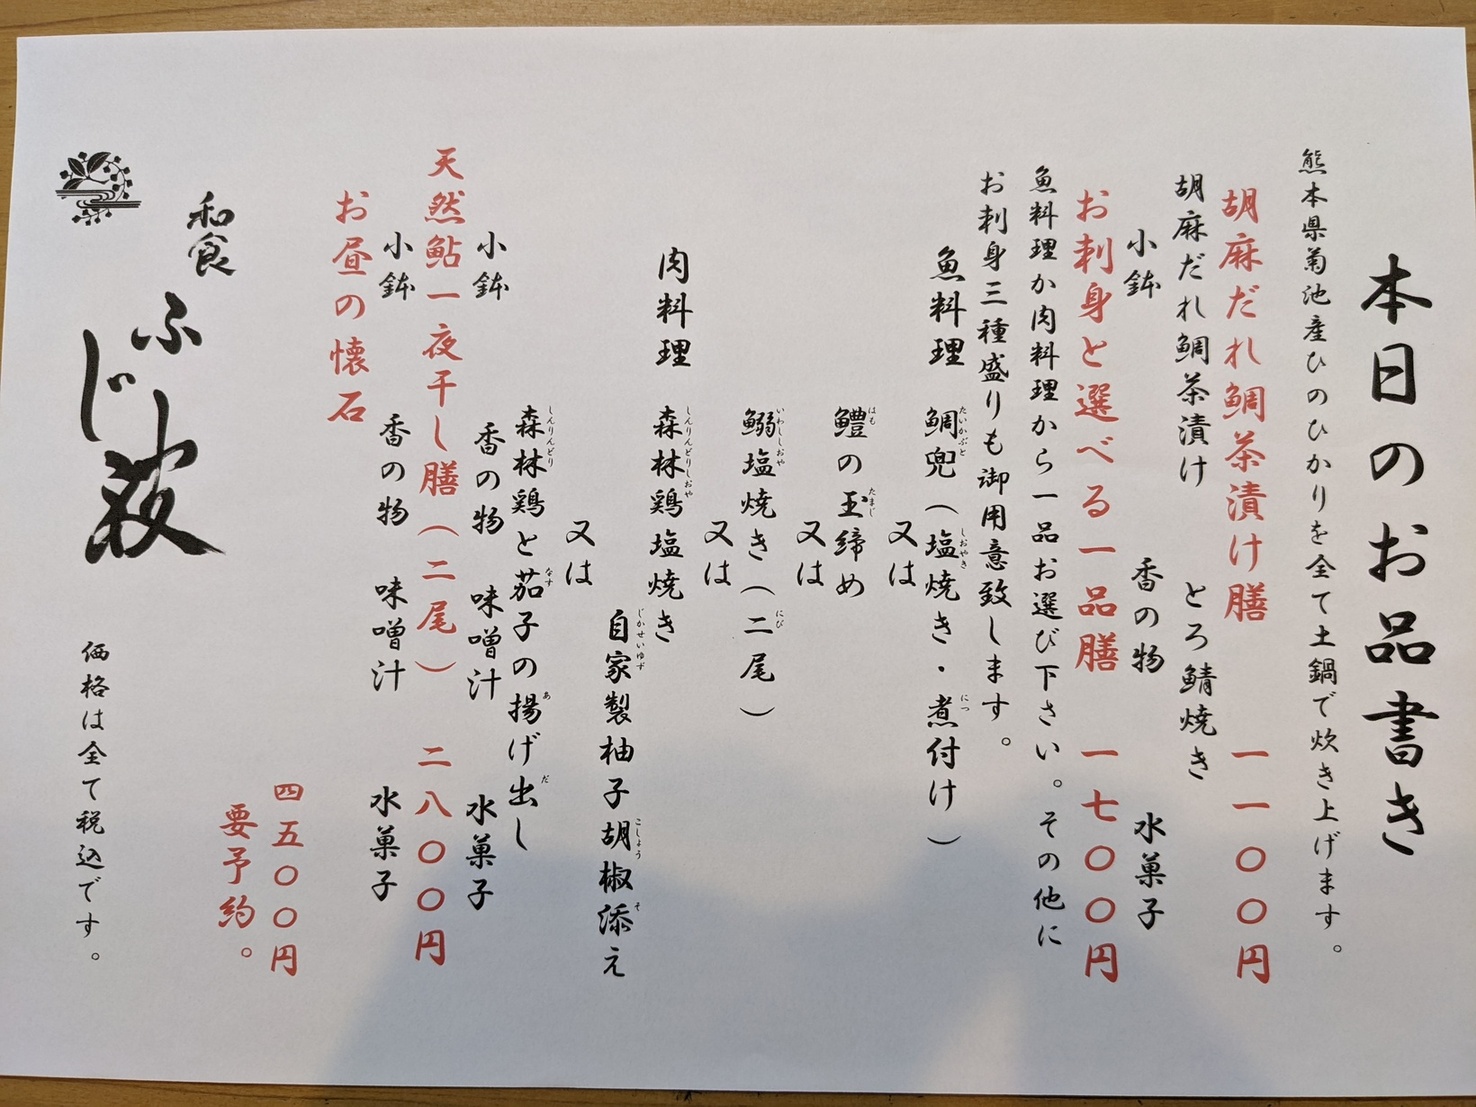 本日のお品書き
熊本県菊池産ひのひかりを全て土鍋で炊き上げます。
胡麻だれ鯛茶漬け膳 一一〇〇円
胡麻だれ鯛茶漬け とろ鯖焼き
小鉢 香の物 水菓子
お刺身と選べる一品膳 一七〇〇円
魚料理か肉料理から一品お選び下さい。その他に
お刺身三種盛りも御用意致します。
魚料理 鯛兜(塩焼き・煮付け)
たいかぶと しおやき につ
又は
鱧の玉締め
はも たまじ
又は
鰯塩焼き(二尾)
いわししおや にび
又は
肉料理 森林鶏塩焼き
しんりんどりしおや
自家製柚子胡椒添え
じかせいゆず こしょう そ
又は
森林鶏と茄子の揚げ出し
しんりんどり なす あ だ
小鉢 香の物 味噌汁 水菓子
天然鮎一夜干し膳(二尾) 二八〇〇円
小鉢 香の物 味噌汁 水菓子
お昼の懐石
四五〇〇円
要予約。
和食 ふじ波
価格は全て税込です。